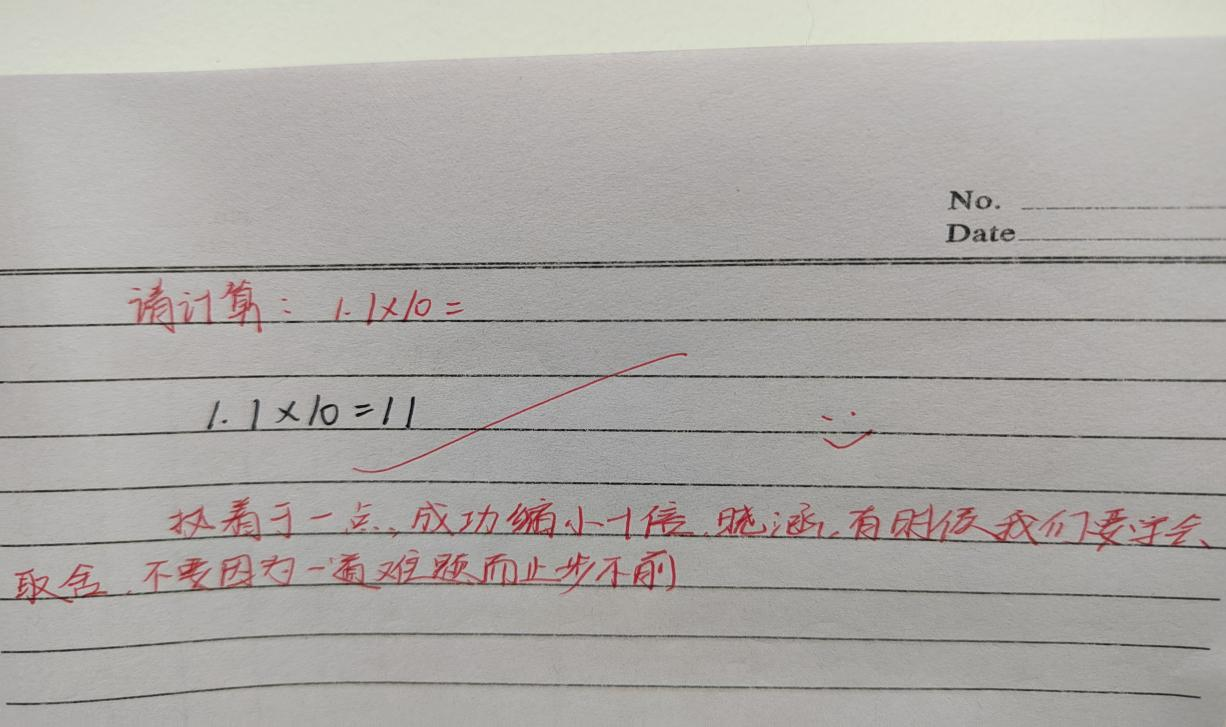 No.
Date
请计算: 1.1×10=
1.1×10=11
执着于一点,成功缩小十倍,晓涵,有时候我们要学会
取舍,不要因为一道难题而止步不前